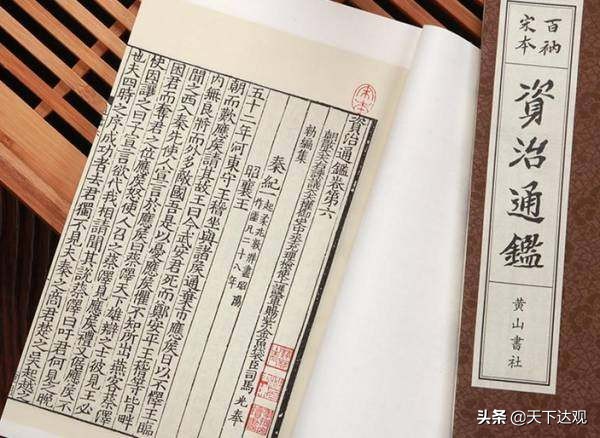 百衲
宋本
資治通鑑
黄山書社
資治通鑑卷第六
朝散大夫諫議大夫權御史中丞充理檢使上護軍賜紫金魚袋臣司馬光奉
勑編集
秦紀一
起柔兆敦牂盡昭陽
作噩凡二十八年
昭襄王
五十二年河東守王稽坐與諸侯通棄市應侯日以不懌王臨
朝而歎應侯請其故王曰今武安君死而鄭安平王稽等皆畔
內無良將而外多敵國吾是以憂應侯懼不知所出燕客蔡澤
聞之西入秦先使人宣言於應侯曰蔡澤天下雄辯之士彼見王必
困君而奪君之位應侯怒使人召之蔡澤見應侯禮又倨應侯不
快因讓之曰子宣言欲代我相請聞其說蔡澤曰吁君何見之晚
也夫四時之序成功者去君獨不見夫秦之商君楚之吳起越之
头条 @天下达观